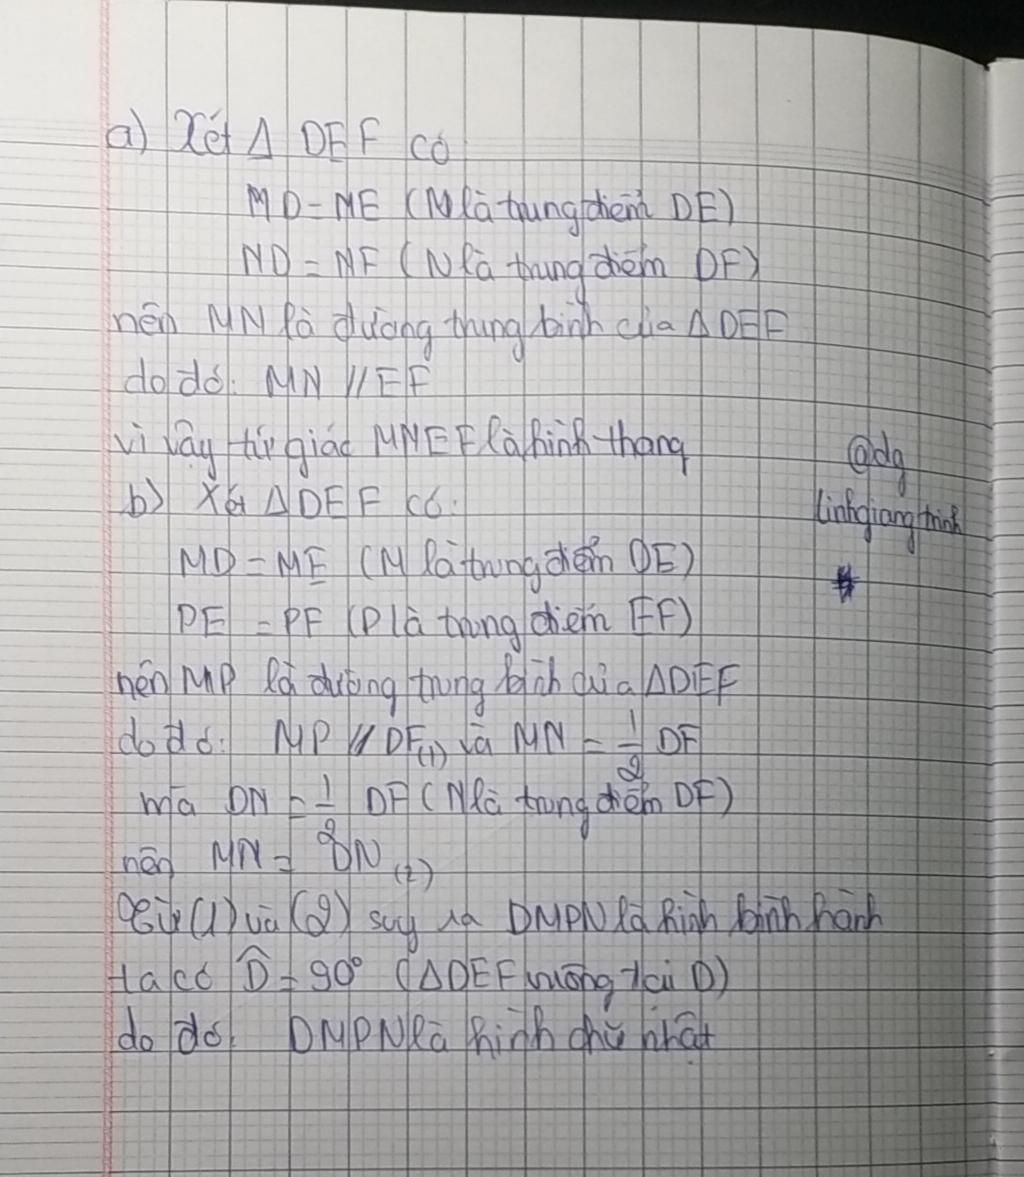 a) Xét Δ DEF có
MD = ME (M là trung điểm DE)
ND = NF (N là trung điểm DF)
nên MN là đường trung bình của Δ DEF
do đó: MN // EF
vì vậy tứ giác MNEF là hình thang
@dg
linhgiangtrinh
b) Xét Δ DEF có:
MD = ME (M là trung điểm DE)
PE = PF (P là trung điểm EF)
nên MP là đường trung bình của ΔDEF
do đó: MP // DF (1) và MN = 1/2 DF
mà DN = 1/2 DF (N là trung điểm DF)
nên MN = DN (2)
Từ (1) và (2) suy ra DMPN là hình bình hành
ta có D̂ = 90° (ΔDEF vuông tại D)
do đó: DMPN là hình chữ nhật